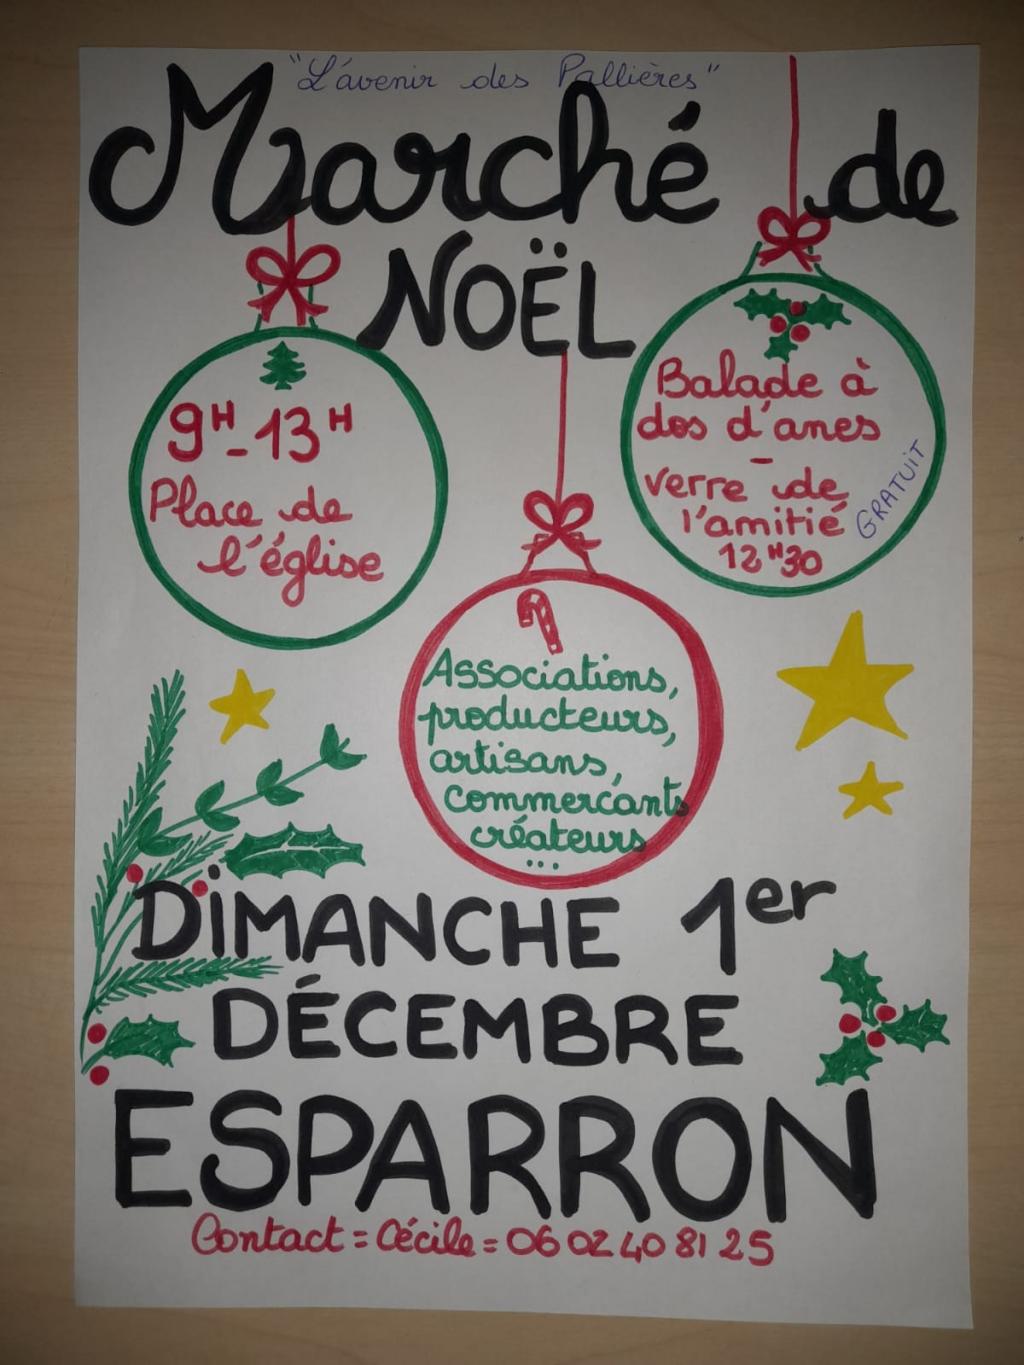 "L'avenir des Pallières"
Marché de
NOËL
9H-13H
Place de
l'église
Balade à
dos d'anes
-
verre de
l'amitié
12H30
GRATUIT
Associations,
producteurs,
artisans,
commercants
créateurs
...
DIMANCHE 1er
DÉCEMBRE
ESPARRON
Contact = Cécile = 06 02 40 81 25